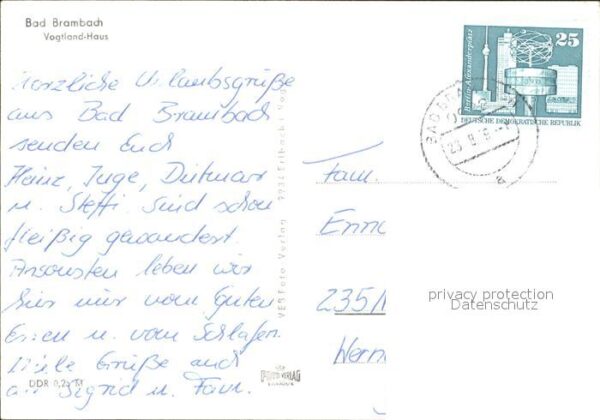 Bad Brambach
Vogtland-Haus
Herzliche Urlaubsgrüße
aus Bad Brambach
senden Euch
Heinz, Inge, Dietmar
u. Steffi. Sind schon
fleißig gewandert.
Ansonsten leben wir
hier nur vom Guten
Essen u. vom Schlafen.
Viele Grüße auch
an Sigrid u. Fam.
DDR 0,25 M
VEB Foto-Verlag 9934 Erlbach
FOTO VERLAG
Berlin-Alexanderplatz
25
DEUTSCHE DEMOKRATISCHE REPUBLIK
BAD BRA
a
Fam.
235/
Wern
privacy protection
Datenschutz